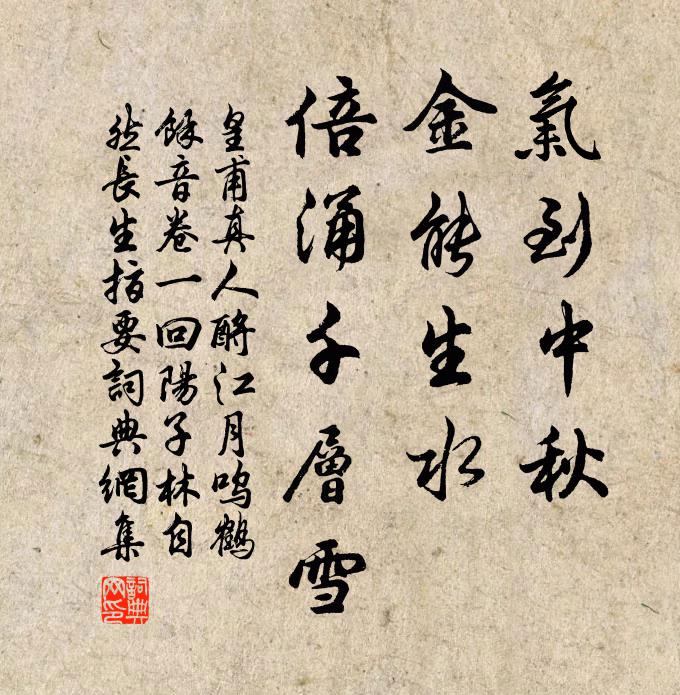 氣到中秋
金能生水
倍涌千層雪
皇甫真人酹江月鸣鶴
餘音卷一回陽子林自
然長生指要詞典網集
詞典网印